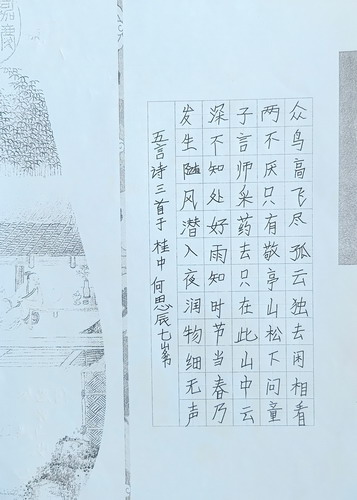 众鸟高飞尽孤云独去闲相看
两不厌只有敬亭山松下问童
子言师采药去只在此山中云
深不知处好雨知时节当春乃
发生随风潜入夜润物细无声
五言诗三首于桂中何思辰七
嘉慶